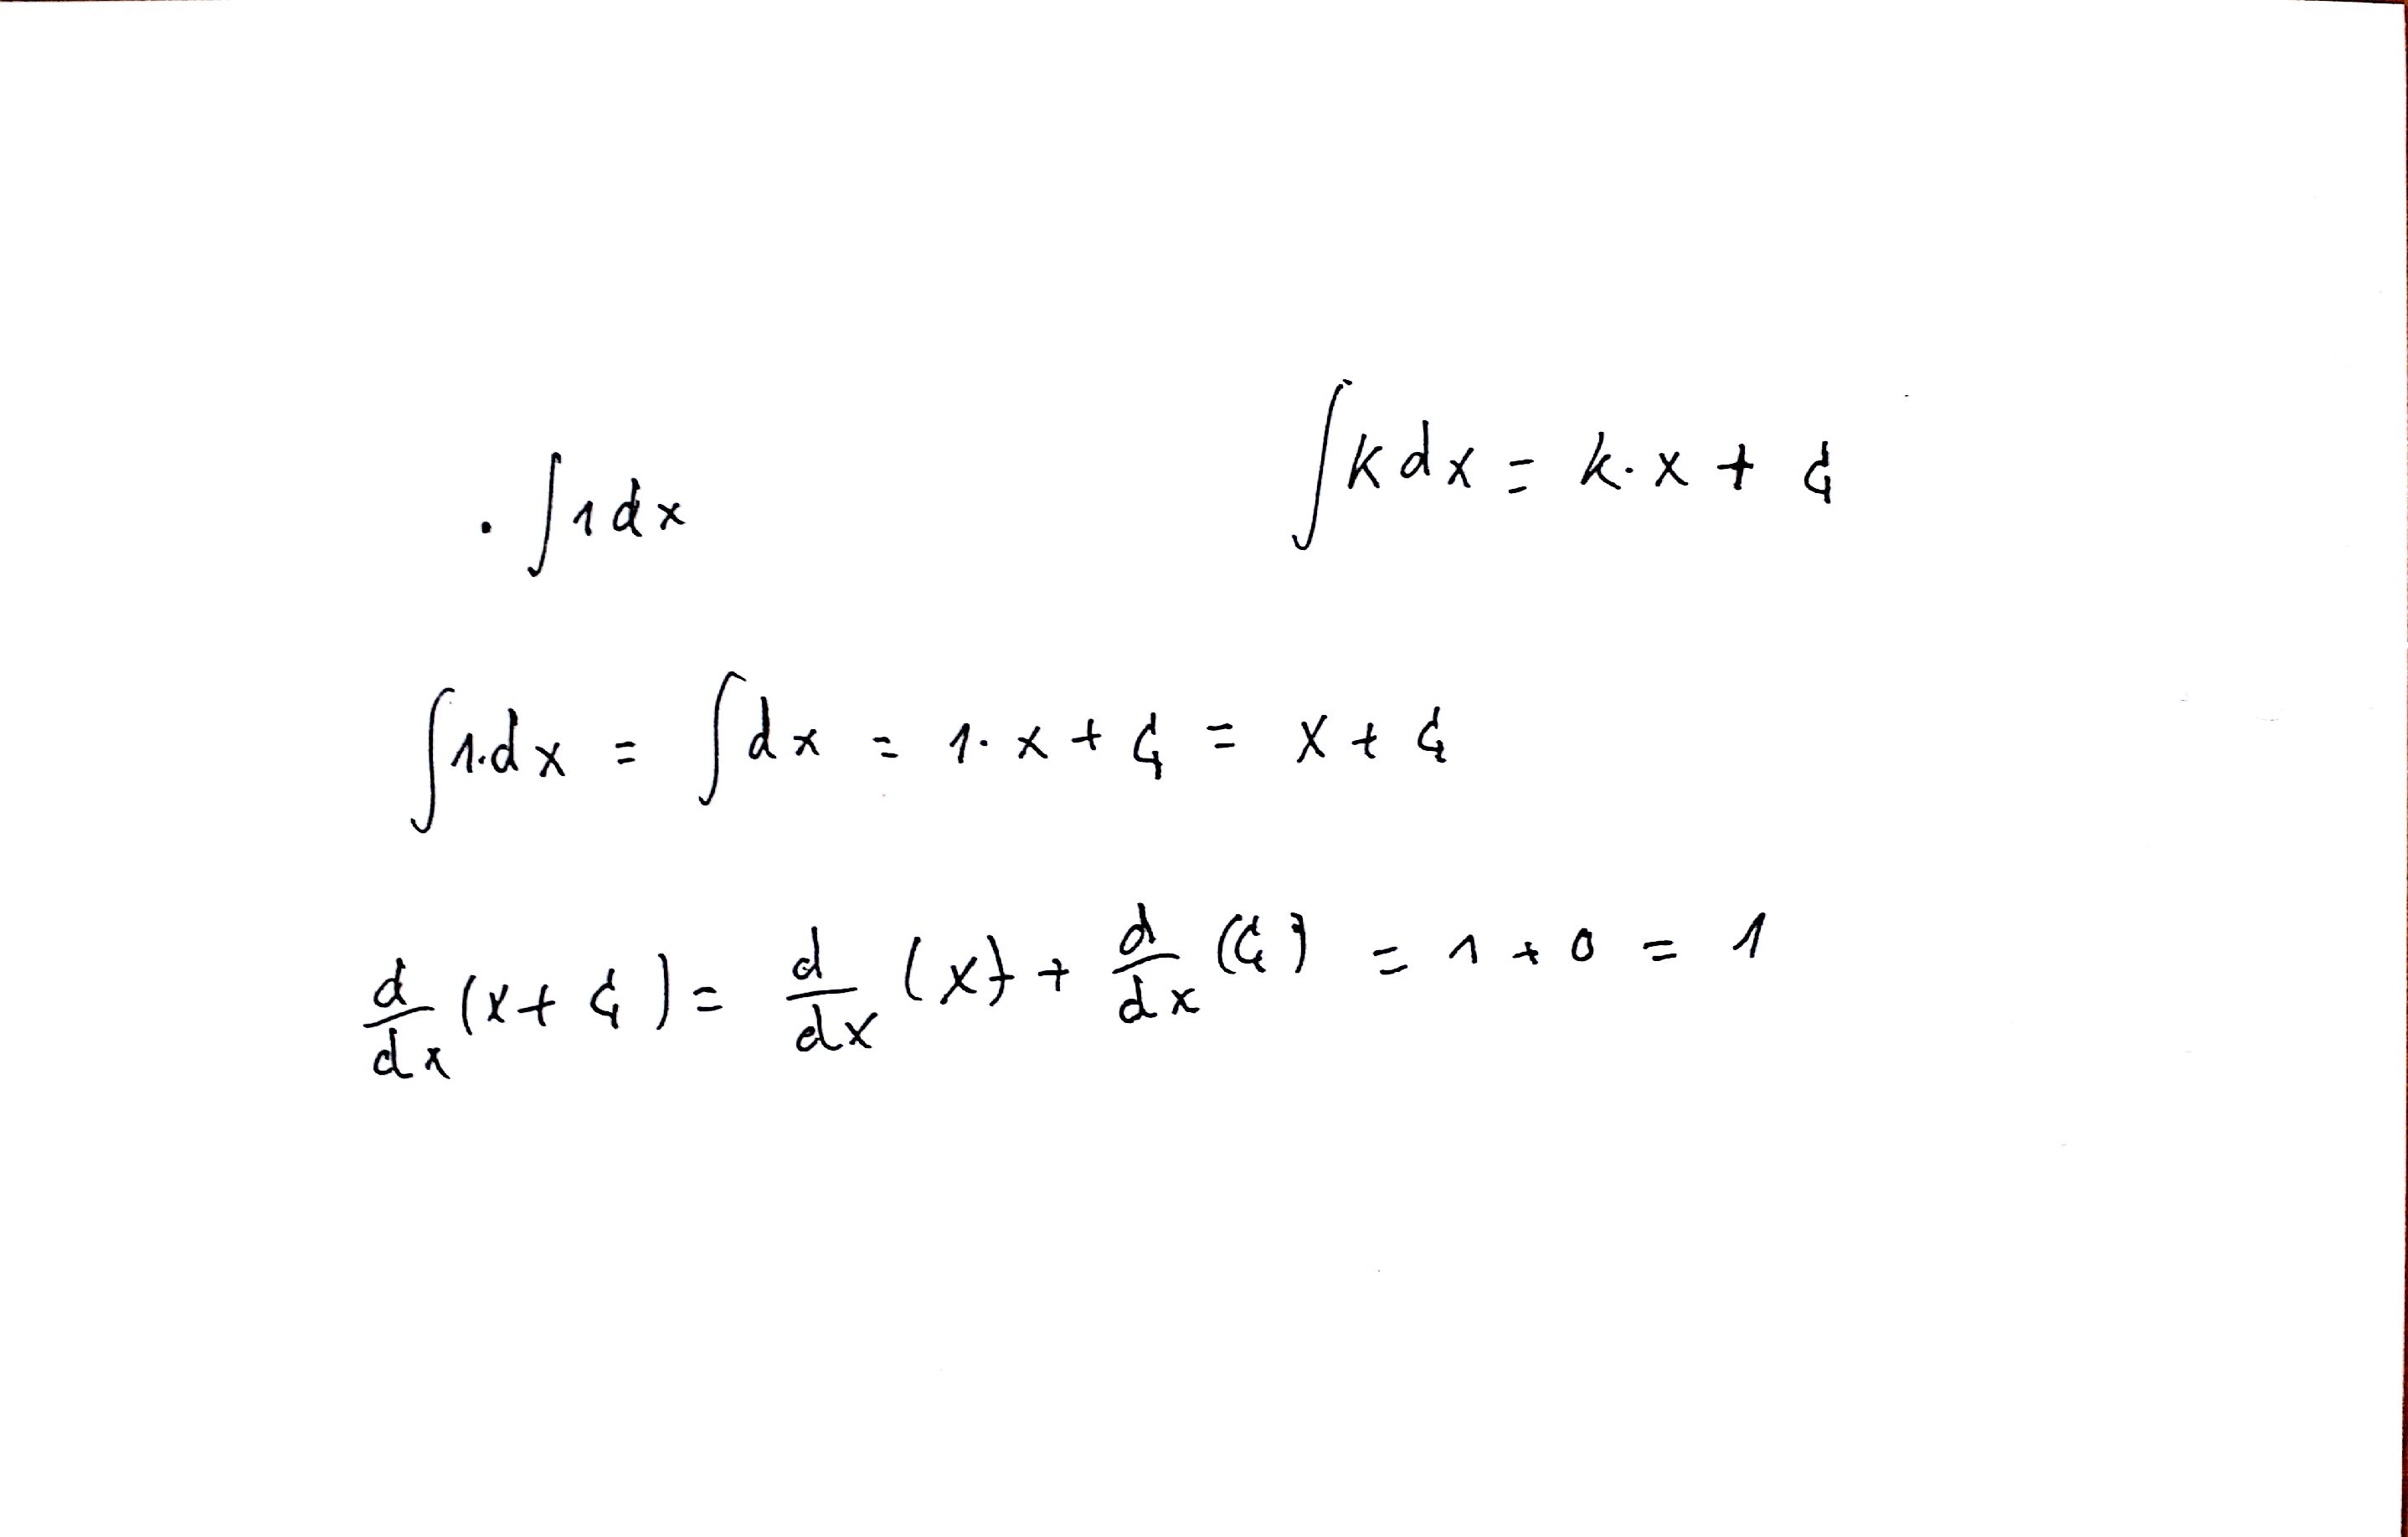 . ∫1dx    ∫kdx = k·x + C
∫1·dx = ∫dx = 1·x + C = x + C
d/dx (x + C) = d/dx (x) + d/dx (C) = 1 + 0 = 1